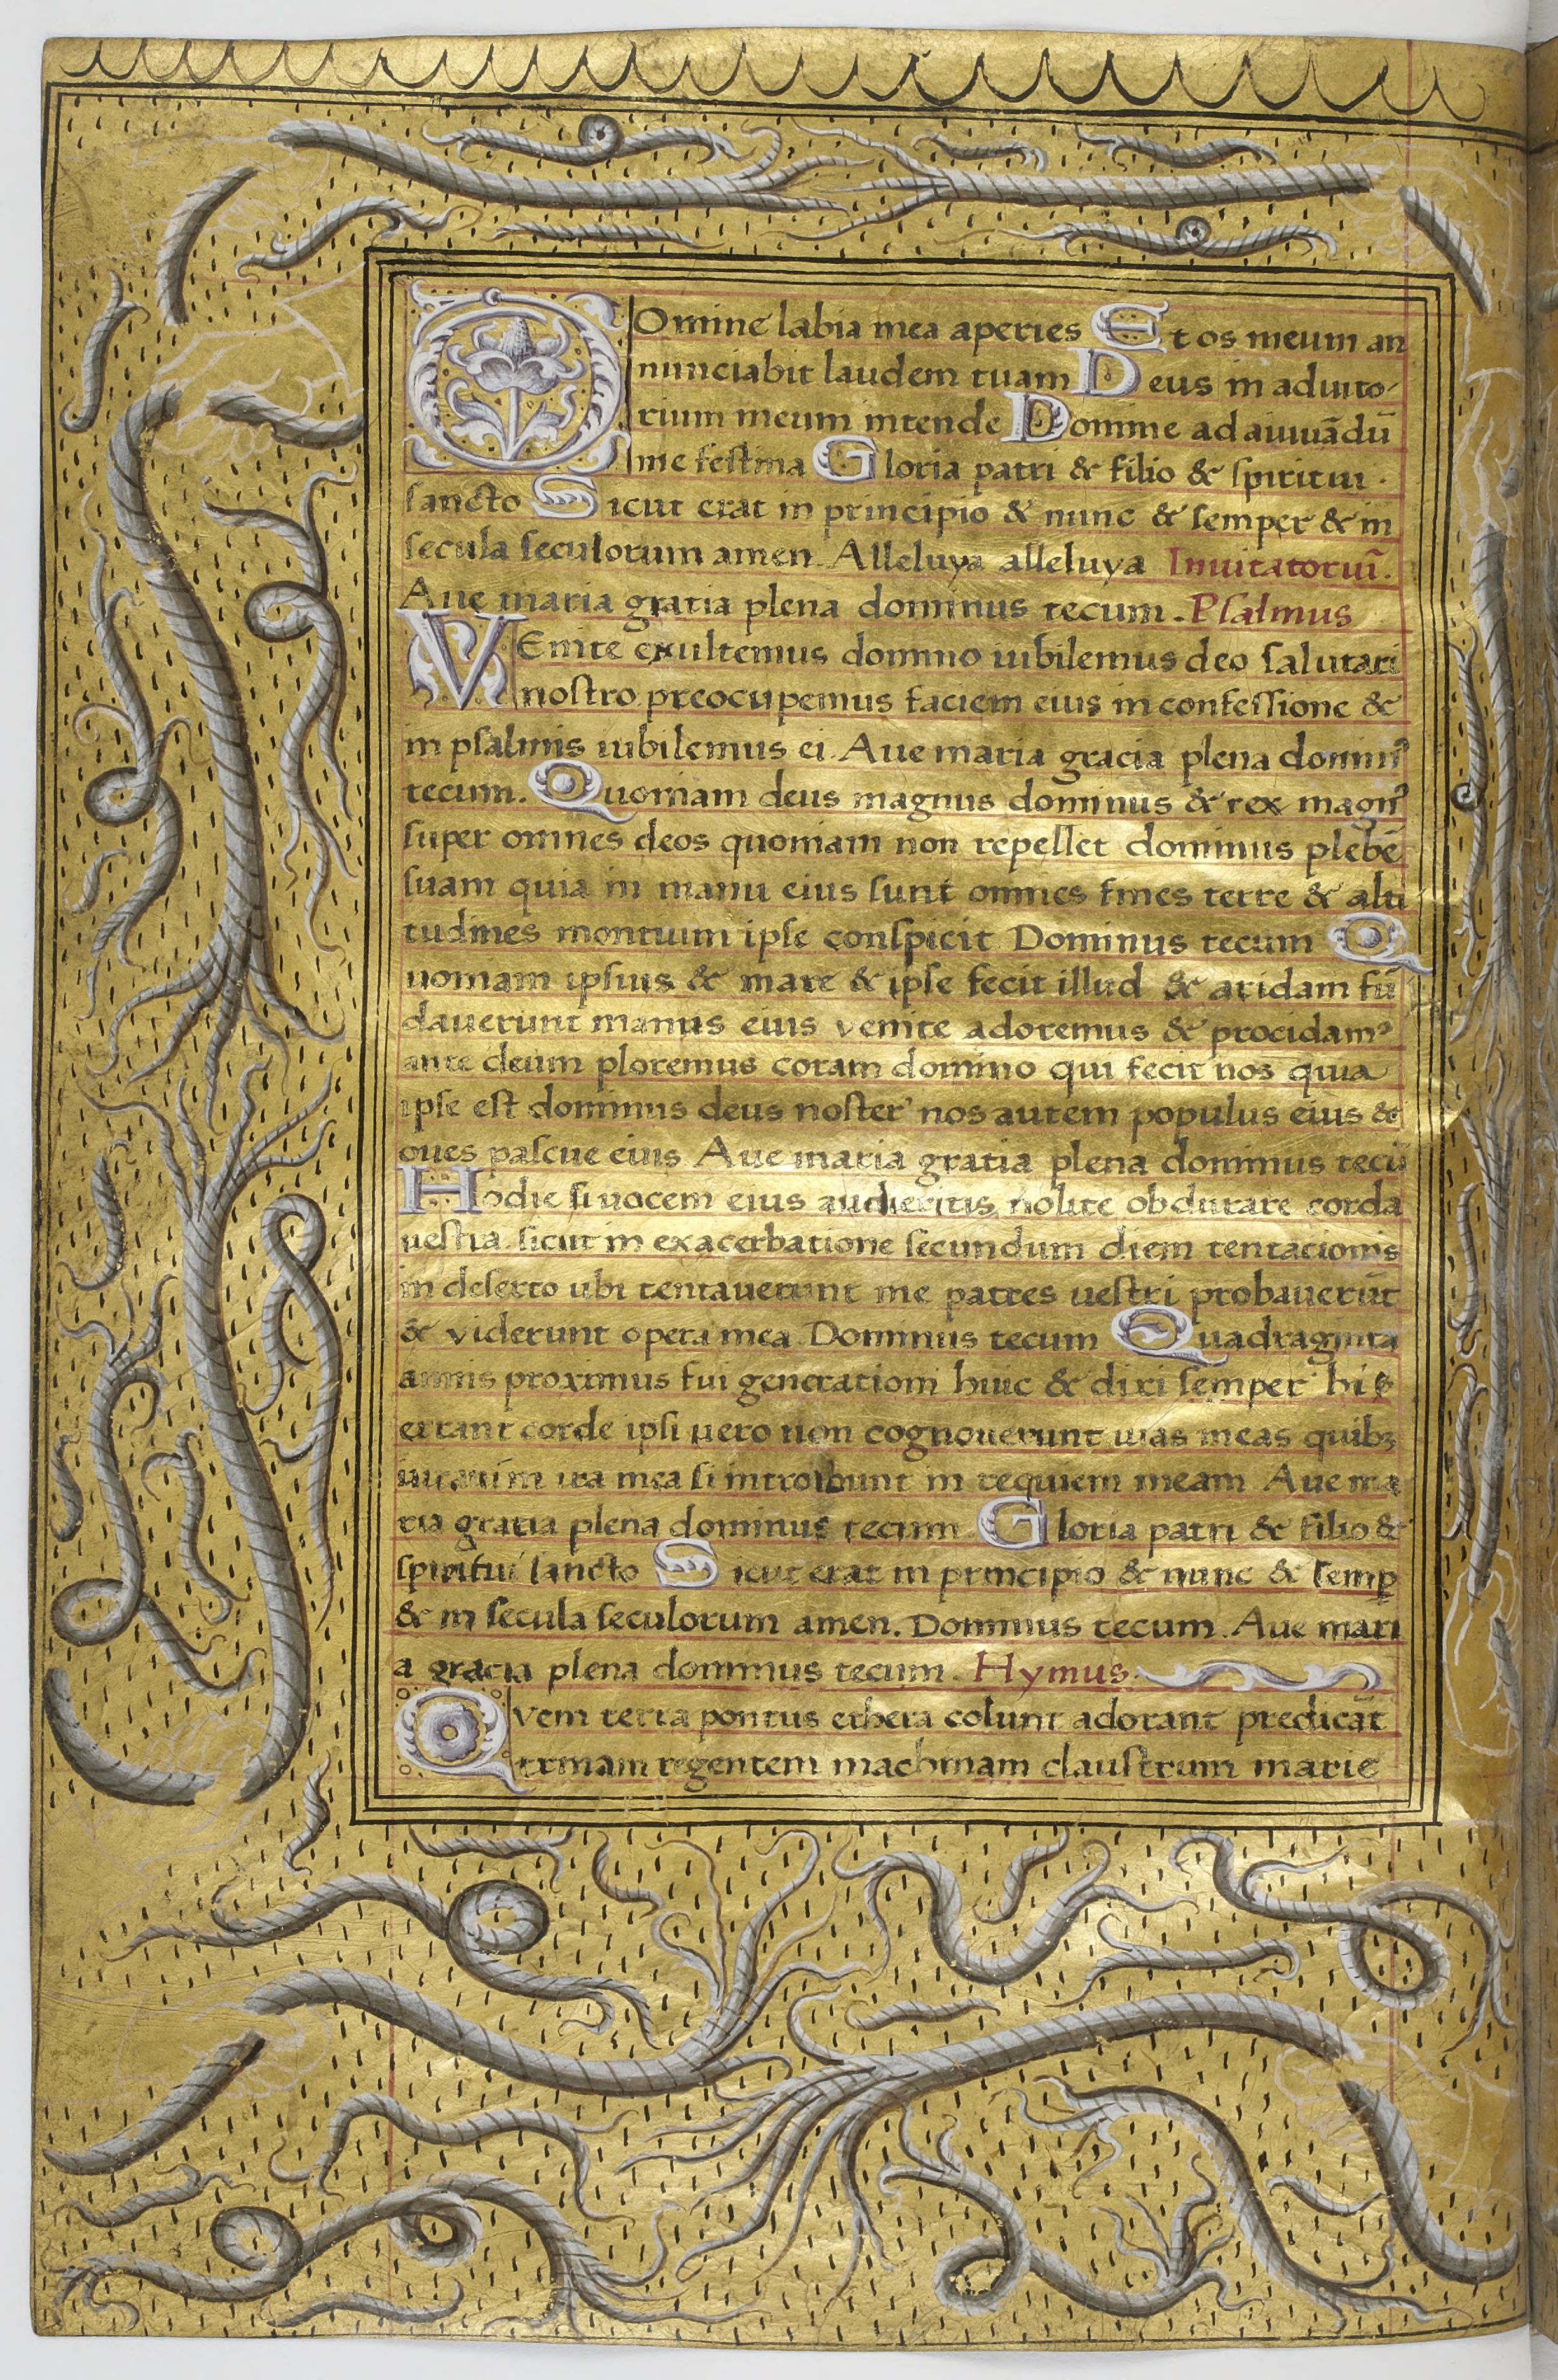 DOmine labia mea aperies Et os meum an
nunciabit laudem tuam Deus in adiuto-
rium meum intende Domine ad aiuuādū
me festina Gloria patri & filio & spiritui .
sancto Sicut erat in principio & nunc & semper & in
secula seculorum amen. Alleluya alleluya Inuitatoriū.
Aue maria gratia plena dominus tecum. Psalmus
VEnite exultemus domino iubilemus deo salutari
nostro preocupemus faciem eius in confessione &
in psalmis iubilemus ei. Aue maria gracia plena dominꝰ
tecum. Quoniam deus magnus dominus & rex magnꝰ
super omnes deos quoniam non repellet dominus plebē
suam quia in manu eius sunt omnes fines terre & alti
tudines montium ipse conspicit Dominus tecum Q
uoniam ipsius & mare & ipse fecit illud & aridam fū
dauerunt manus eius venite adoremus & procidamꝰ
ante deum ploremus coram domino qui fecit nos quia
ipse est dominus deus noster nos autem populus eius &
oues pascue eius Aue maria gratia plena dominus tecū
Hodie si uocem eius audieritis nolite obdurare corda
uestra sicut in exacerbatione secundum diem tentacionis
in deserto ubi tentauerunt me patres uestri probauerūt
& viderunt opera mea Dominus tecum Quadraginta
annis proximus fui generationi huic & dixi semper hi
errant corde ipsi uero non cognouerunt uias meas quibꝫ
iuraui in ira mea si introibunt in requiem meam Aue ma
ria gratia plena dominus tecum Gloria patri & filio &
spiritui sancto Sicut erat in principio & nunc & semꝑ
& in secula seculorum amen. Dominus tecum. Aue mari
a gracia plena dominus tecum. Hymus.
QVem terra pontus ethera colunt adorant predicāt
trinam regentem machinam claustrum marie